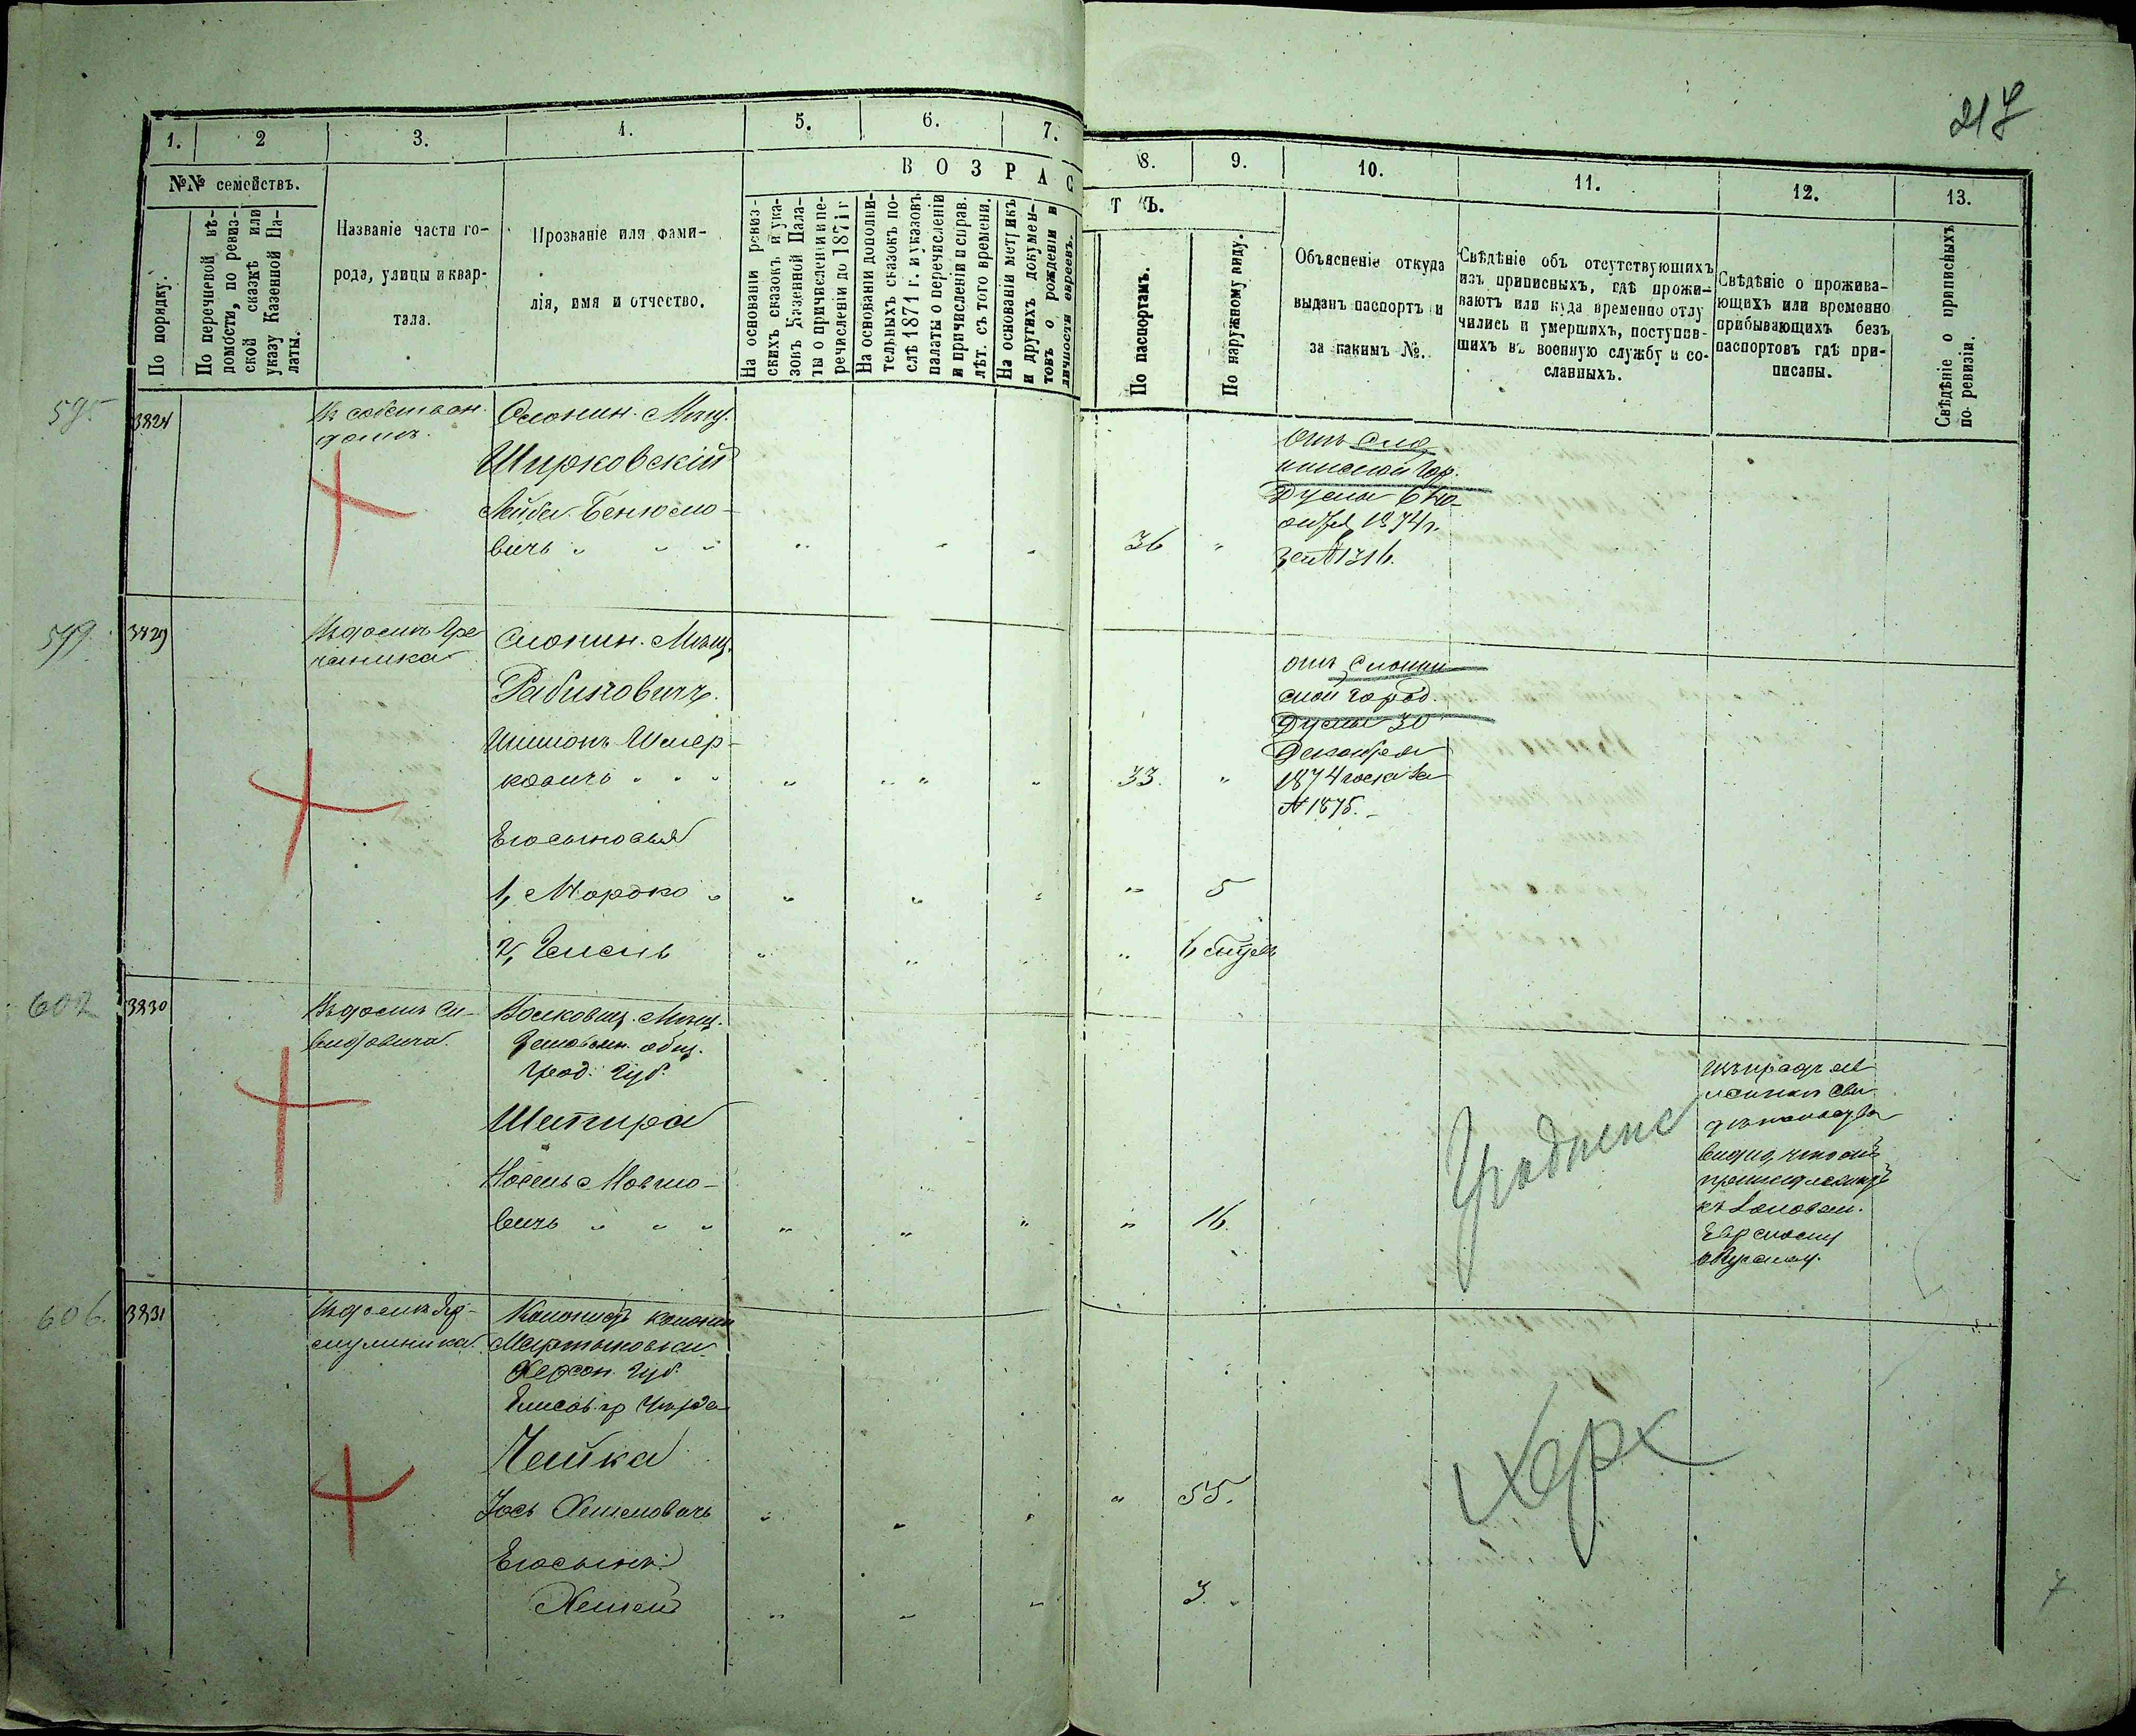 217
1.
2
3.
4.
5.
6.
7.
8.
9.
10.
11.
12.
13.
№№ семействъ.
По порядку.
По перечневой вѣ-
домости, по ревиз-
ской сказкѣ или
указу Казенной Па-
латы.
Названіе части го-
рода, улицы и квар-
тала.
Прозваніе или фами-
лія, имя и отчество.
ВОЗРАС
ТЪ.
На основаніи ревиз-
скихъ сказокъ и ука-
зовъ Казенной Пала-
ты о причисленіи и пе-
речисленіи до 1871 г
На основаніи дополни-
тельныхъ сказокъ по-
слѣ 1871 г. и указовъ
палаты о перечисленіи
и причисленіи и справ.
лѣт. съ того времени.
На основаніи метрикъ
и другихъ докумен-
товъ о рожденіи и
личности евреевъ.
По паспортамъ.
По наружному виду.
Объясненіе откуда
выданъ паспортъ и
за какимъ №.
Свѣдѣніе объ отсутствующихъ
изъ приписныхъ, гдѣ прожи-
ваютъ или куда временно отлу
чились и умершихъ, поступив-
шихъ въ военную службу и со-
сланныхъ.
Свѣдѣніе о прожива-
ющихъ или временно
прибывающихъ безъ
паспортовъ гдѣ при-
писаны.
Свѣдѣніе о приписныхъ
по ревизіи.
595
3824
Въ собствен.
домѣ.
Слонин. Мѣщ.
Ширковскій
Лейба Беньомо-
вичь
36
Отъ Сло
нимской Гор.
Думы 6 Но-
ября 1874 г.
за № 1316.
599
3829
Въ домѣ Гре
чаника
Слонин. Мѣщ.
Рабиновичъ.
Шимонъ Шмер-
ковичъ
33.
отъ Слоним
ской город.
Думы 30
Декабря
1874 года за
№ 1875.
Его сыновья
1, Мордко
5
2,
6
602
3830
Въ домѣ
Волковиш. Мѣщ.
общ.
Грод. Губ.
Шапира
Мовшо-
вичь
16.
Гродненс
свидѣтельства
видно, что онъ
принадлежитъ
къ
Еврейскому
обществу.
606.
3831
Въ домѣ
Колонистъ колоніи
Мартыновки
Херсон. Губ.
Елисав. гр Уѣзда
Чайка
Іось Хемемовичъ
55.
Его сынъ
3.
Херс